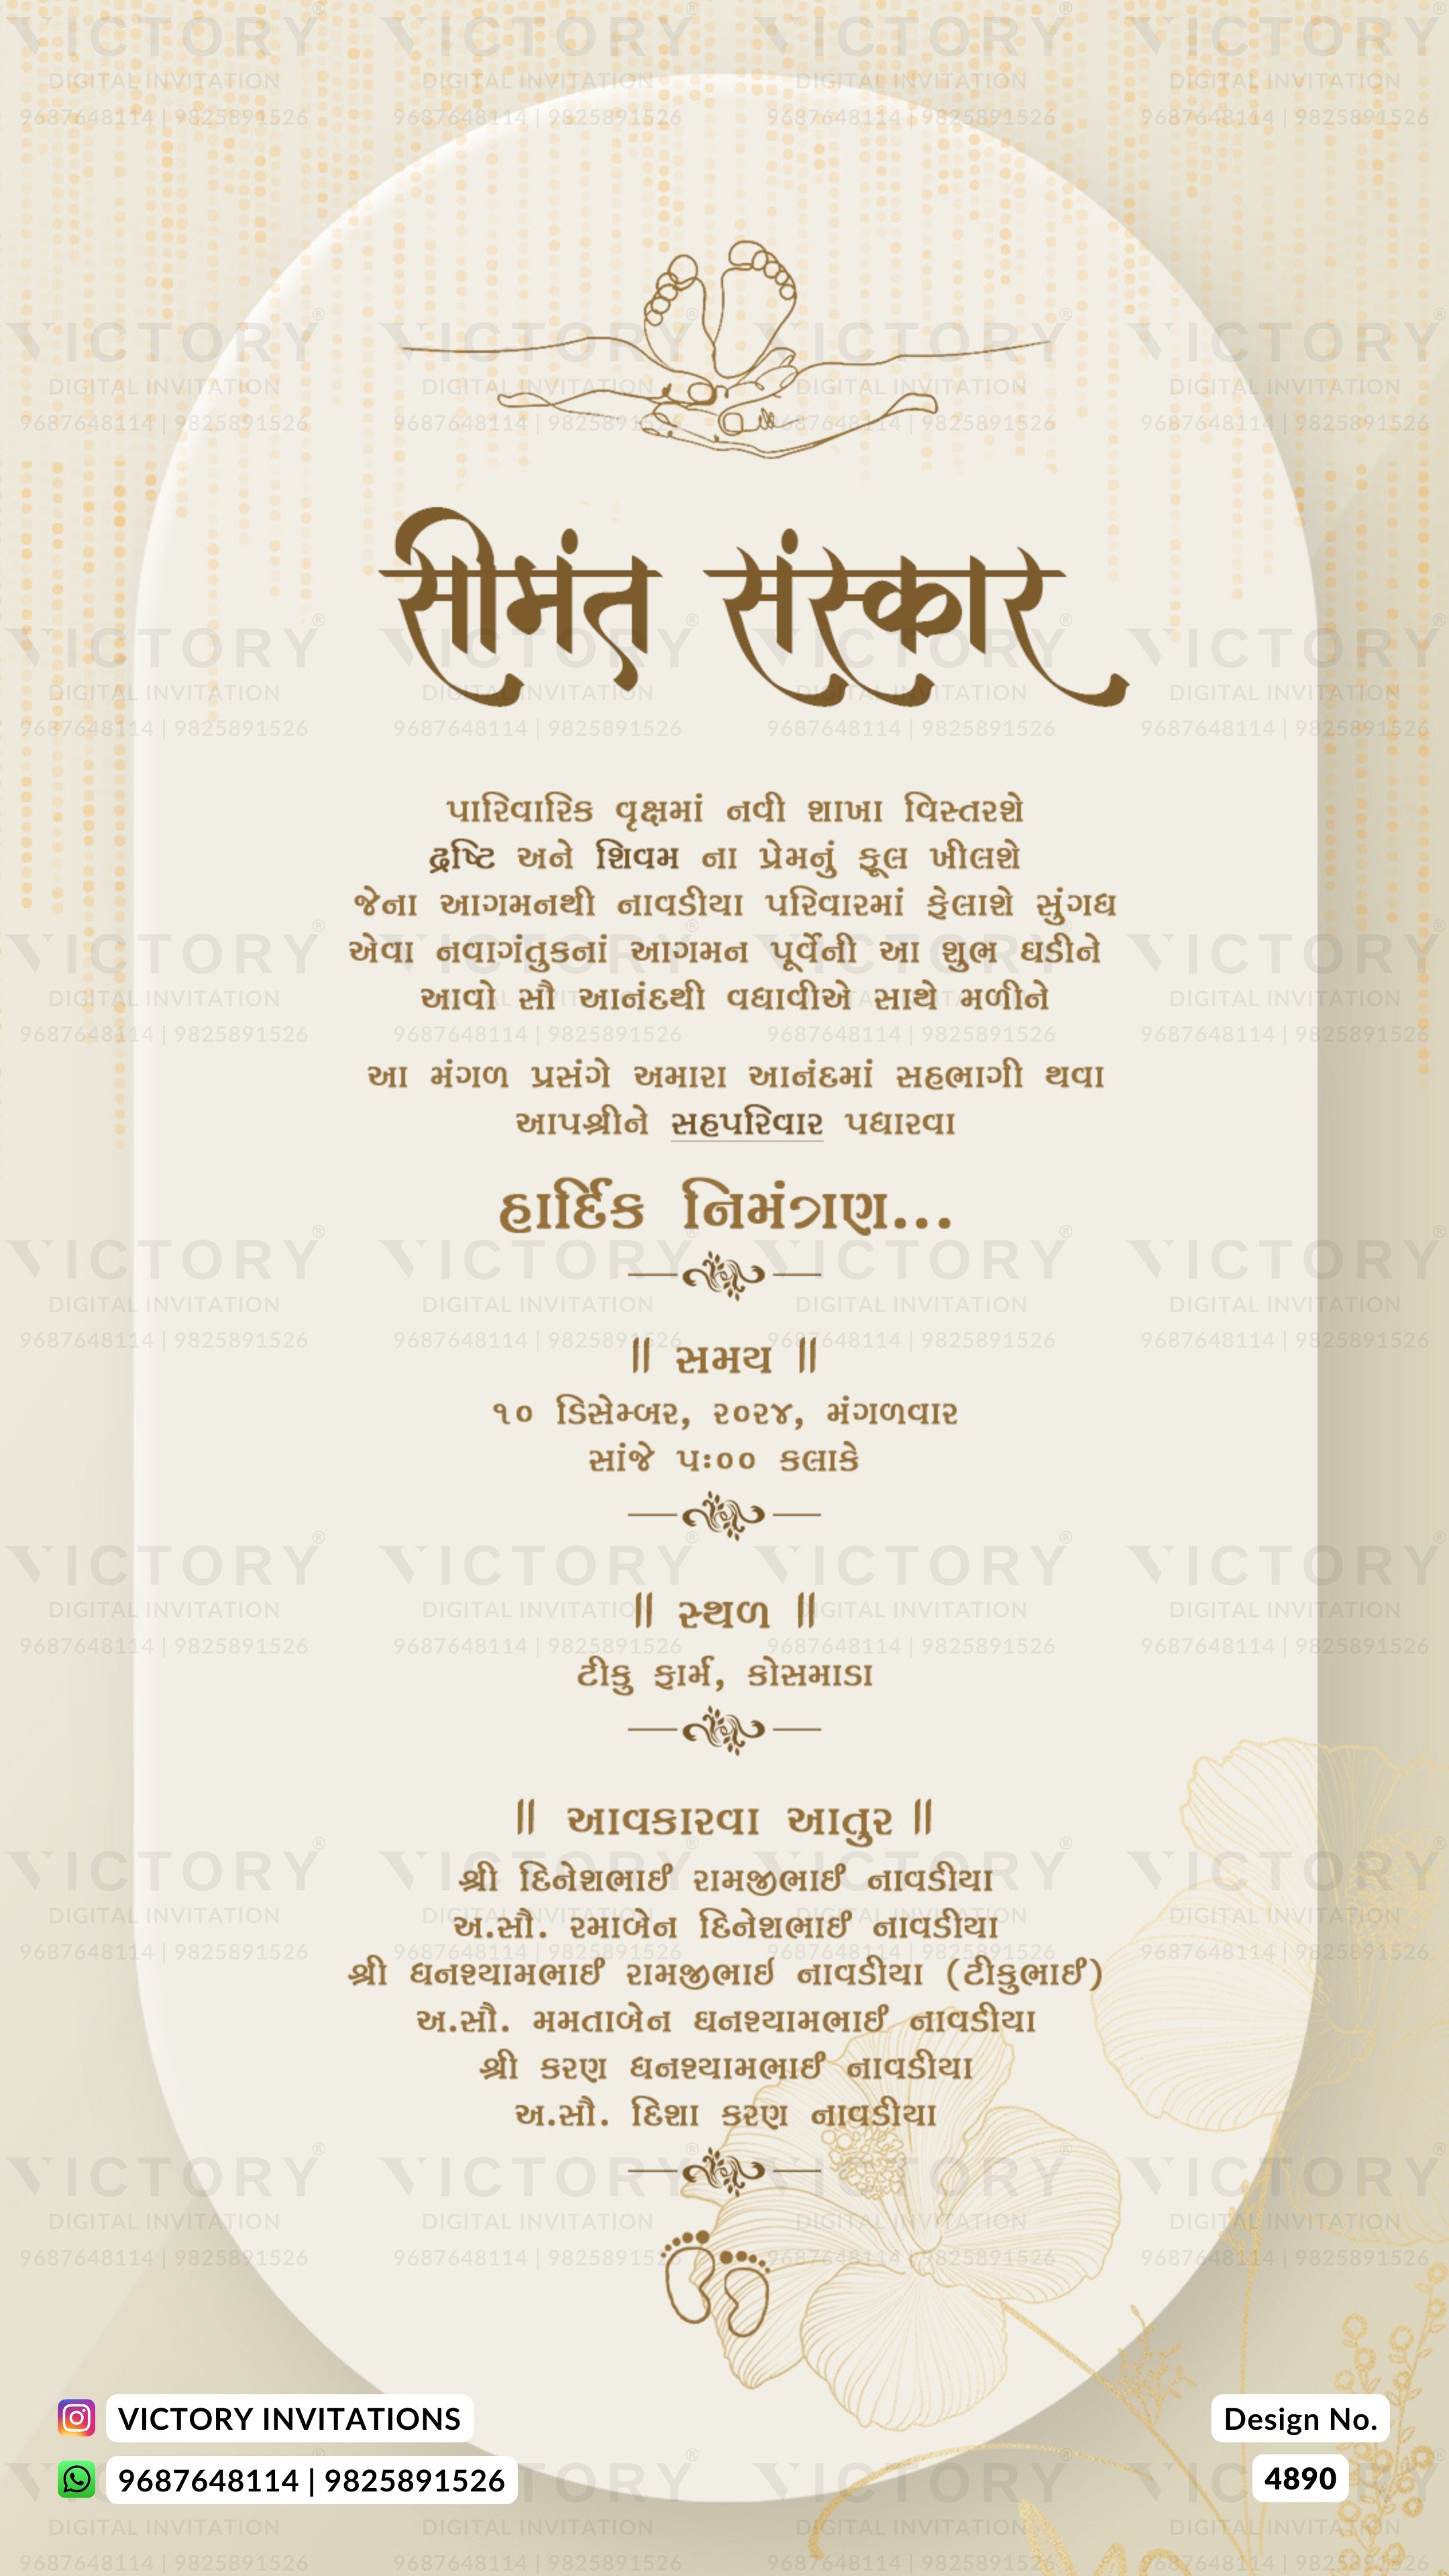 सीमंत संस्कार
પારિવારિક વૃક્ષમાં નવી શાખા વિસ્તરશે
દ્રષ્ટિ અને શિવમ ના પ્રેમનું ફૂલ ખીલશે
જેના આગમનથી નાવડીયા પરિવારમાં ફેલાશે સુંગધ
એવા નવાગંતુકનાં આગમન પૂર્વેની આ શુભ ઘડીને
આવો સૌ આનંદથી વધાવીએ સાથે મળીને
આ મંગળ પ્રસંગે અમારા આનંદમાં સહભાગી થવા
આપશ્રીને સહપરિવાર પધારવા
હાર્દિક નિમંત્રણ...
॥ સમય ॥
૧૦ ડિસેમ્બર, ૨૦૨૪, મંગળવાર
સાંજે ૫:૦૦ કલાકે
॥ સ્થળ ॥
ટીકુ ફાર્મ, કોસમાડા
॥ આવકારવા આતુર ॥
શ્રી દિનેશભાઈ રામજીભાઈ નાવડીયા
અ.સૌ. રમાબેન દિનેશભાઈ નાવડીયા
શ્રી ધનશ્યામભાઈ રામજીભાઇ નાવડીયા (ટીકુભાઈ)
અ.સૌ. મમતાબેન ઘનશ્યામભાઈ નાવડીયા
શ્રી કરણ ધનશ્યામભાઈ નાવડીયા
અ.સૌ. દિશા કરણ નાવડીયા
VICTORY INVITATIONS
9687648114 | 9825891526
Design No.
4890
VICTORY®
DIGITAL INVITATION
9687648114 | 9825891526